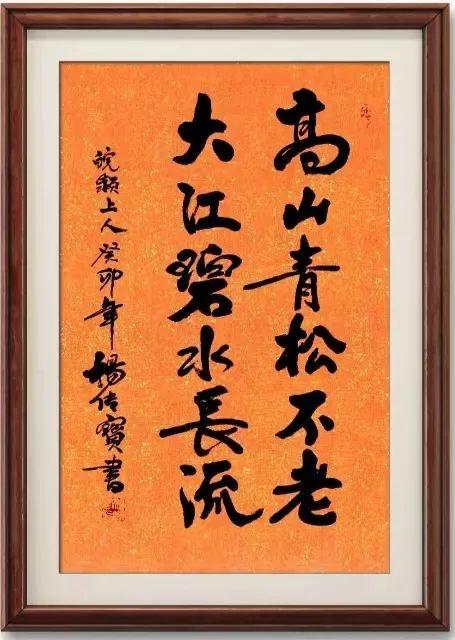 高山青松不老
大江碧水長流
皖颍上人癸卯年楊传寶書